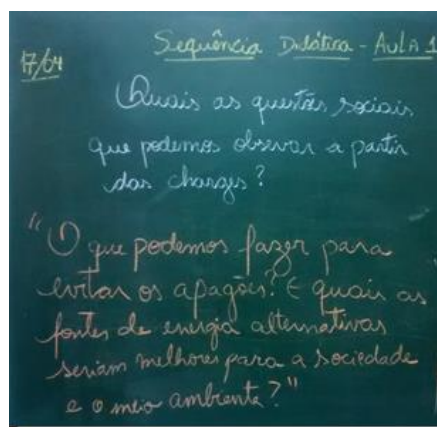 Sequência Didática - Aula 1
17/04
Quais as questões sociais
que podemos observar a partir
das charges?
"O que podemos fazer para
evitar os apagões? E quais as
fontes de energia alternativas
seriam melhores para a sociedade
e o meio ambiente?"